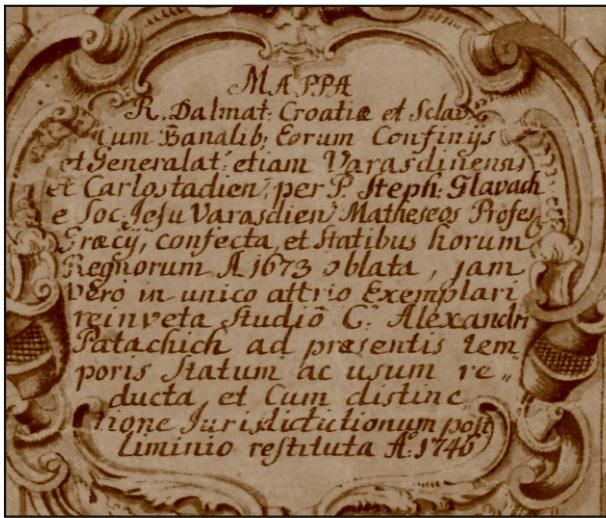 MAPPA
R. Dalmat: Croatiæ et Sclav
cum Banalib; Eorum Confinijs
et Generalat: etiam Varasdinensis
et Carlostadien; per P. Steph: Glavach
e Soc. Jesu Varasdien: Matheseos Profes,
Græcij, confecta, et Statibus horum
Regnorum A 1673 oblata, jam
vero in unico attrito Exemplari
reinveta Studio C. Alexandri
Patachich ad præsentis tem
poris Statum ac usum re„
ducta, et Cum distinc
tione Jurisdictictionum post
liminio restituta Aº: 1746